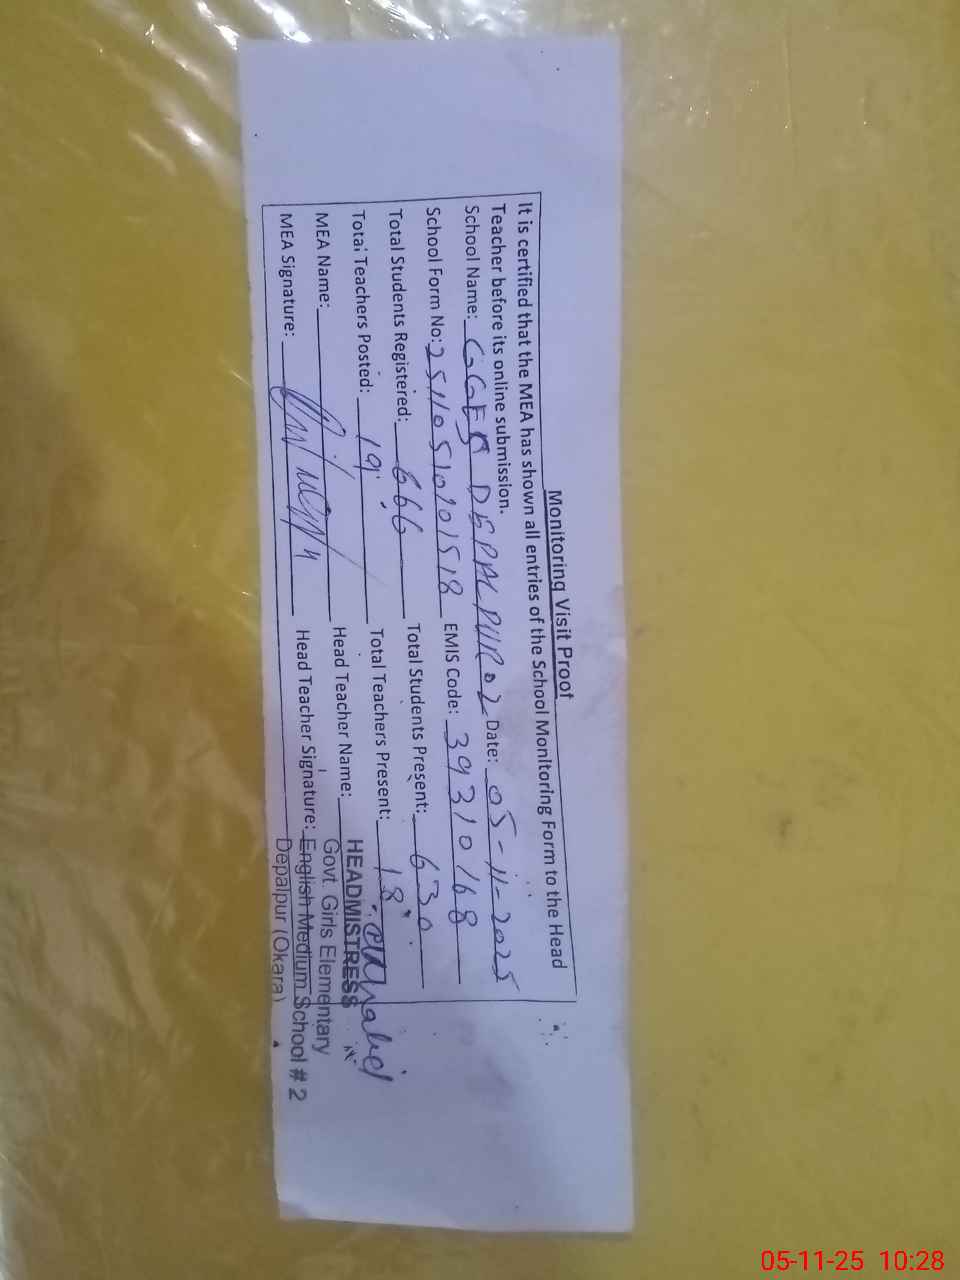 Monitoring Visit Proof
It is certified that the MEA has shown all entries of the School Monitoring Form to the Head
Teacher before its online submission.
School Name: GGES DEPALPUR 02 Date: 05-11-2025
School Form No: 2511051020 1518 EMIS Code: 39310168
Total Students Registered: 666 Total Students Present: 630
Total Teachers Posted: 19 Total Teachers Present: 18
MEA Name: Head Teacher Name:
MEA Signature: Head Teacher Signature:
HEADMISTRESS
Govt. Girls Elementary
English Medium School # 2
Depalpur (Okara)
05-11-25 10:28